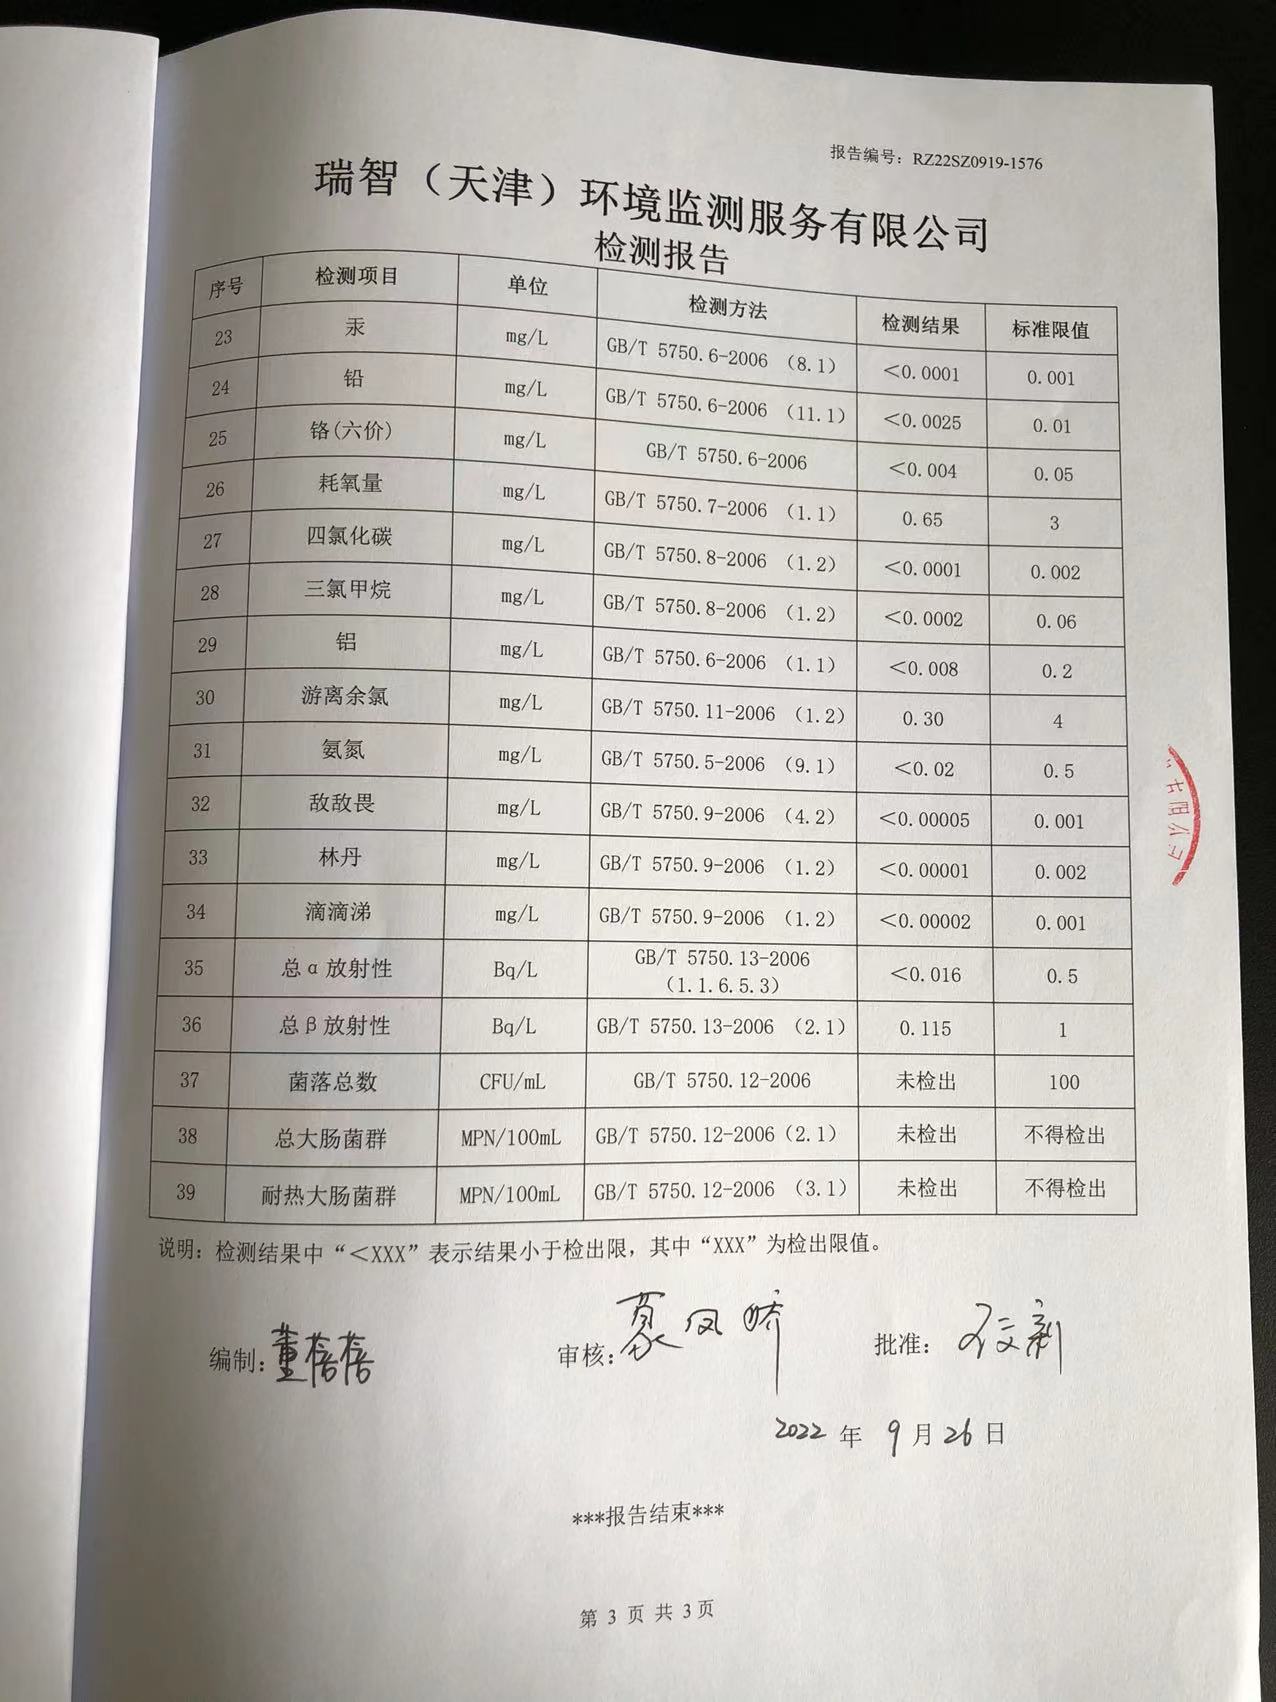 报告编号：RZ22SZ0919-1576
瑞智（天津）环境监测服务有限公司
检测报告
序号 检测项目 单位 检测方法 检测结果 标准限值
23 汞 mg/L GB/T 5750.6-2006 （8.1） ＜0.0001 0.001
24 铅 mg/L GB/T 5750.6-2006 （11.1） ＜0.0025 0.01
25 铬(六价) mg/L GB/T 5750.6-2006 ＜0.004 0.05
26 耗氧量 mg/L GB/T 5750.7-2006 （1.1） 0.65 3
27 四氯化碳 mg/L GB/T 5750.8-2006 （1.2） ＜0.0001 0.002
28 三氯甲烷 mg/L GB/T 5750.8-2006 （1.2） ＜0.0002 0.06
29 铝 mg/L GB/T 5750.6-2006 （1.1） ＜0.008 0.2
30 游离余氯 mg/L GB/T 5750.11-2006 （1.2） 0.30 4
31 氨氮 mg/L GB/T 5750.5-2006 （9.1） ＜0.02 0.5
32 敌敌畏 mg/L GB/T 5750.9-2006 （4.2） ＜0.00005 0.001
33 林丹 mg/L GB/T 5750.9-2006 （1.2） ＜0.00001 0.002
34 滴滴涕 mg/L GB/T 5750.9-2006 （1.2） ＜0.00002 0.001
35 总α放射性 Bq/L GB/T 5750.13-2006 （1.1.6.5.3） ＜0.016 0.5
36 总β放射性 Bq/L GB/T 5750.13-2006 （2.1） 0.115 1
37 菌落总数 CFU/mL GB/T 5750.12-2006 未检出 100
38 总大肠菌群 MPN/100mL GB/T 5750.12-2006（2.1） 未检出 不得检出
39 耐热大肠菌群 MPN/100mL GB/T 5750.12-2006 （3.1） 未检出 不得检出
说明：检测结果中“＜XXX”表示结果小于检出限，其中“XXX”为检出限值。
编制：董蓓蓓 审核： 凤娇 批准：
2022 年 9 月 26 日
***报告结束***
第 3 页 共 3 页